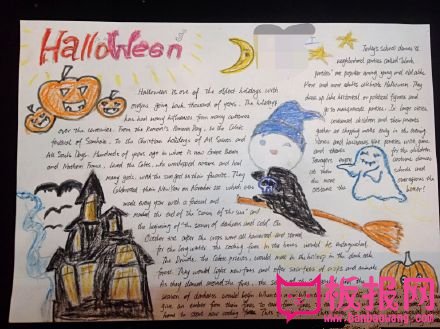 Halloween
Halloween is one of the oldest holidays with
origins going back thousand of years. The holidays
has had many influences from many cultures
over the centuries. From the Roman's Pomona Day, to the Celtic
festival of Samhain, to the Christian holidays of All Saints and
All Souls Days. Hundreds of years ago in what is now Great Britain
and Northern France, lived the Celts, who worshipped nature and had
many gods, with the sun god as their favorite. They
celebrated their New Year on November 1st which was
made every year with a festival and
marked the end of the "season of the sun" and
the beginning of the season of darkness and cold. On
October after the crops were all harvested and stored
for the long winter the cooking fires in the homes would be extinguished.
The Druids, the Celtic priests, would meet in the hilltop in the dark oak
forest. They would light new fires and offer sacrifices of crops and animals.
As they danced around the fires, the season of the
season of darkness would begin. When the
with an ember from their fires to
home to start new cooking fires.
Today's school dances and
neighborhood parties called "block
parties" are popular among young and old alike.
More and more adults celebrate Halloween. They
dress up like historical or political figures and
go to masquerade parties. In larger cities,
costumed children and their parents
gather at shopping malls early in the evening.
Stores and businesses give parties with games
and treats for the children.
Teenagers enjoy costume dances
at their schools
and the more
outrageous the
costume the better!
板报网
www.banbaowang.com